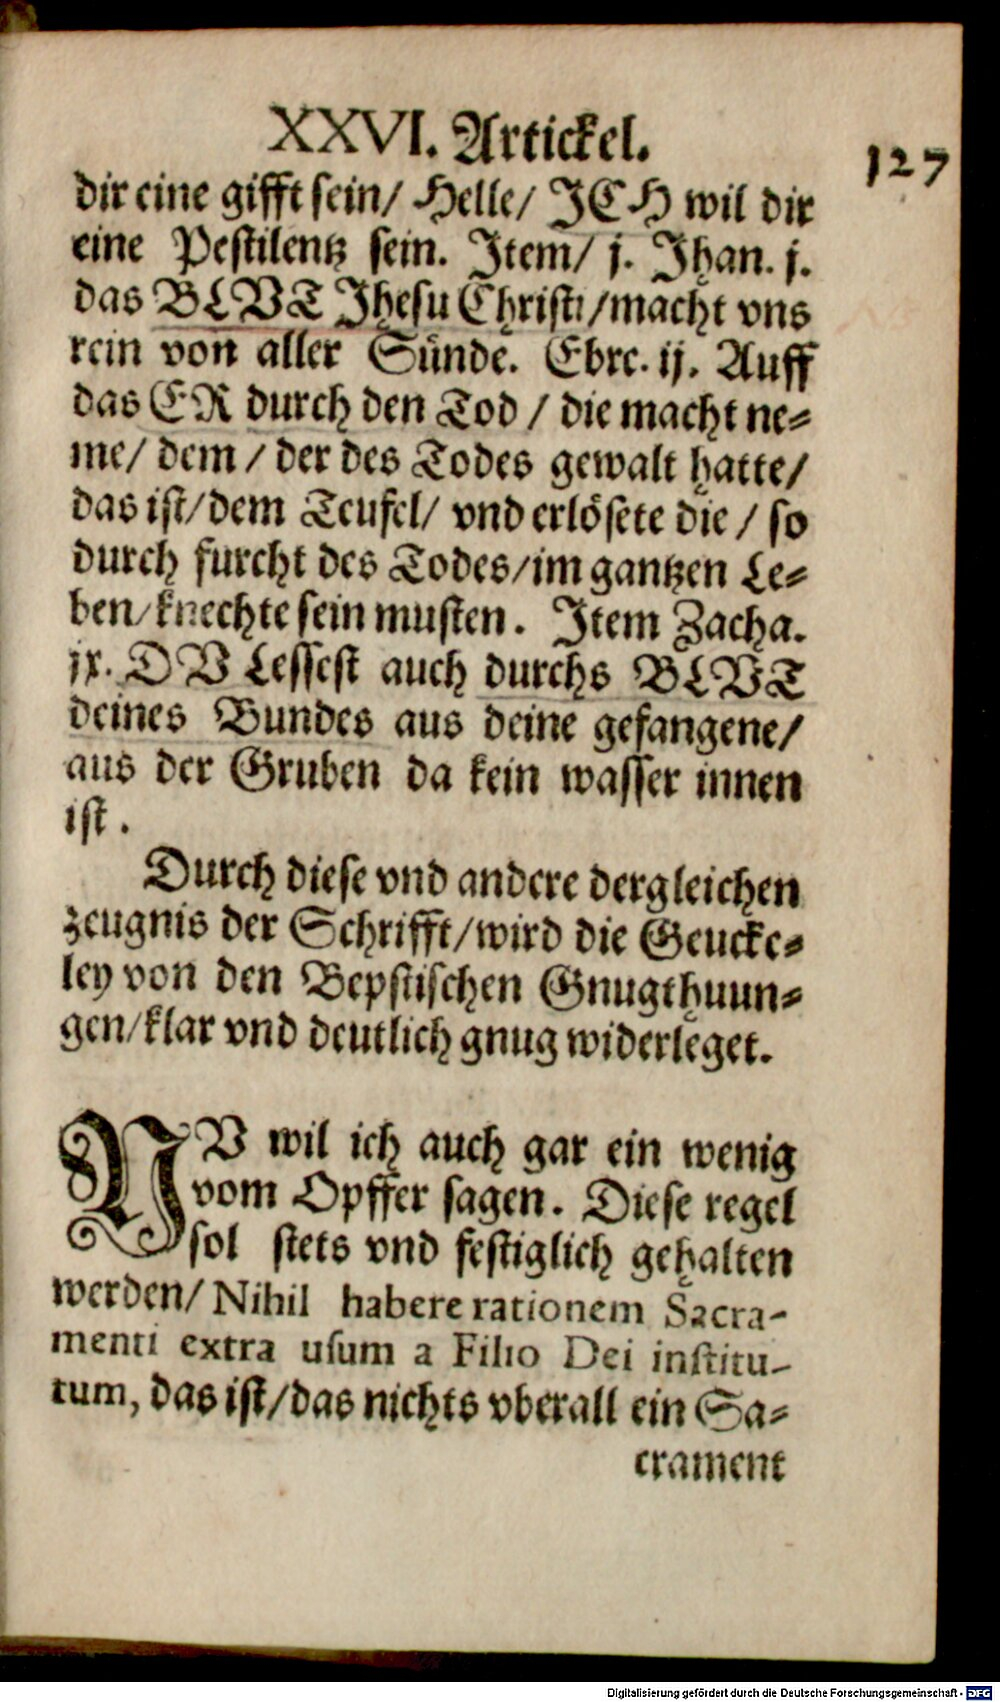 XXVI. Artickel.
127
dir eine gifft sein/ Helle/ JCH wil dir
eine Pestilentz sein. Item/ j. Jhan. j.
das BLVT Jhesu Christi/macht vns
rein von aller Sünde. Ebre. ij. Auff
das ER durch den Tod / die macht ne⸗
me/ dem / der des Todes gewalt hatte/
das ist/dem Teufel/ vnd erlösete die / so
durch furcht des Todes/im gantzen Le⸗
ben/knechte sein musten. Item Zacha.
ix. DV Lessest auch durchs BLVT
deines Bundes aus deine gefangene/
aus der Gruben da kein wasser innen
ist.
Durch diese vnd andere dergleichen
zeugnis der Schrifft/wird die Geucke⸗
ley von den Bepstischen Gnugthuun⸗
gen/klar vnd deutlich gnug widerleget.
NV wil ich auch gar ein wenig
vom Opffer sagen. Diese regel
sol stets vnd festiglich gehalten
werden/ Nihil habere rationem Sacra-
menti extra usum a Filio Dei institu-
tum, das ist/das nichts vberall ein Sa⸗
crament
Digitalisierung gefördert durch die Deutsche Forschungsgemeinschaft - DFG